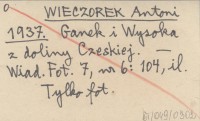 WIECZOREK Antoni
1937. Ganek i Wysoka
z doliny Czeskiej. —
Wiad. Fot. 7, nr 6: 104, il.
Tylko fot.